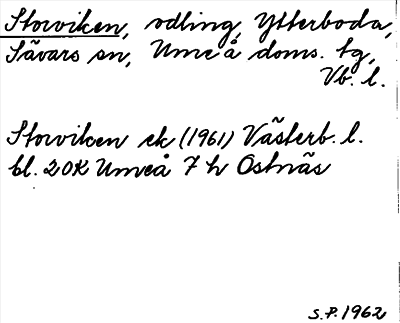 Storviken, odling, Ytterboda,
Sävars sn, Umeå doms. tg,
Vb. l.
Storviken ek (1961) Västerb. l.
bl. 20K Umeå 7 h Östnäs
S.P. 1962